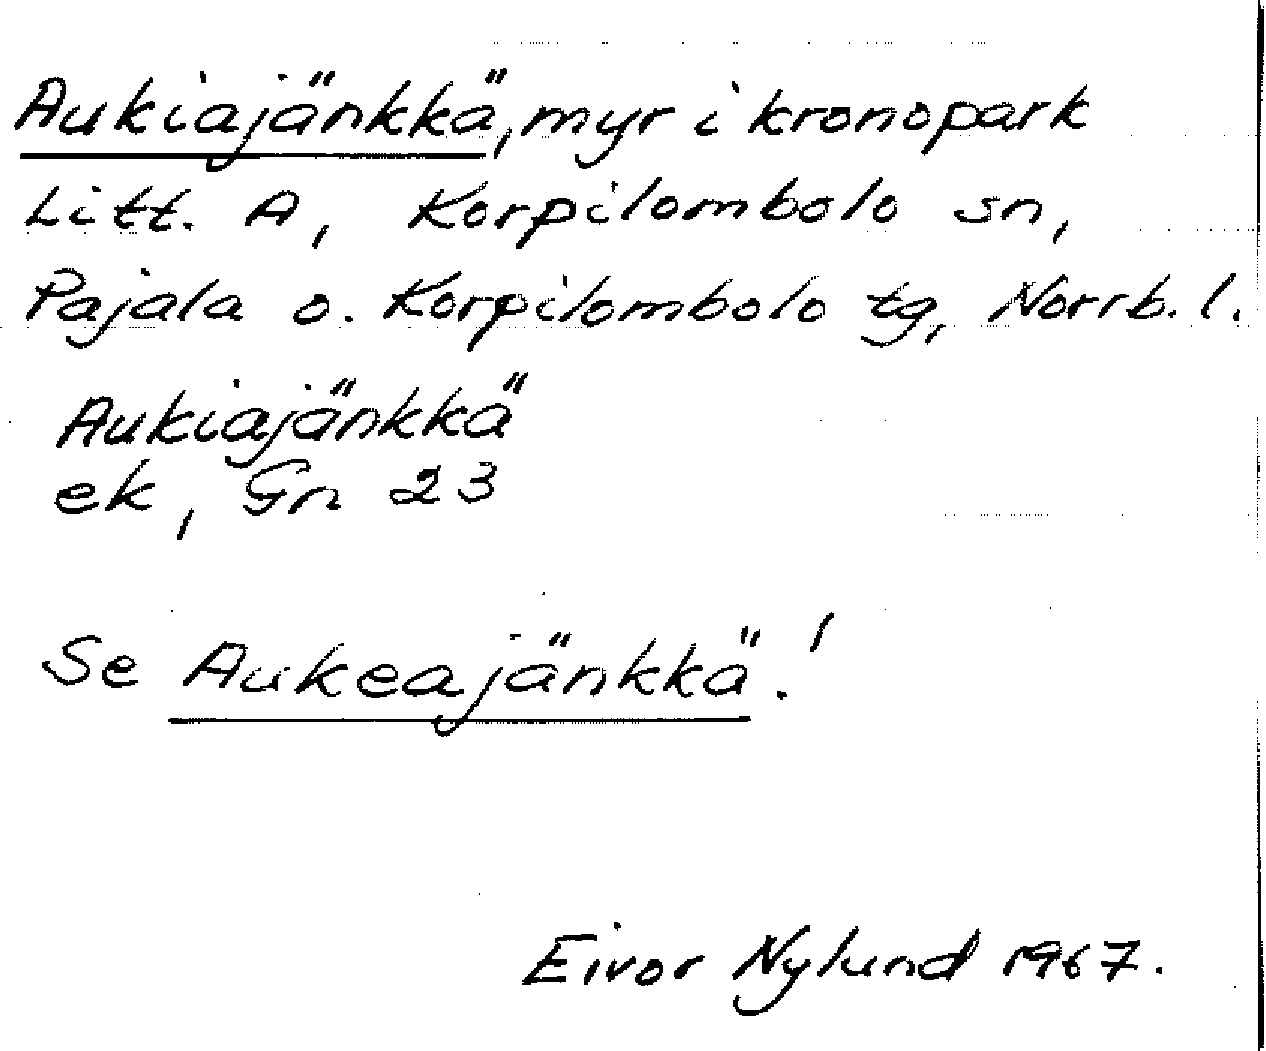 Aukiajänkkä, myr i kronopark
Litt. A, Korpilombolo sn,
Pajala o. Korpilombolo tg, Norrb. l.
Aukiajänkkä
ek, Gn 23
Se Aukeajänkkä!
Eivor Nylund 1967.